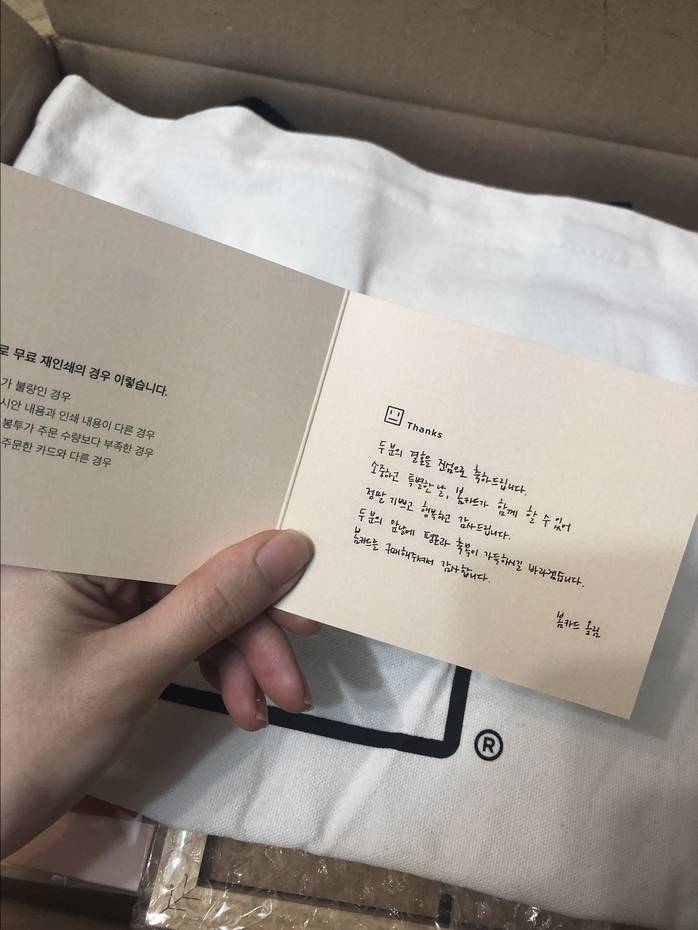 로 무료 재인쇄의 경우 이렇습니다.
가 불량인 경우
시안 내용과 인쇄 내용이 다른 경우
봉투가 주문 수량보다 부족한 경우
주문한 카드와 다른 경우
Thanks
두분의 결혼을 진심으로 축하드립니다.
소중하고 특별한 날, 봄카드가 함께 할 수 있어
정말 기쁘고 행복하고 감사드립니다.
두분의 앞날에 평온과 축복이 가득하시길 바라겠습니다.
봄카드를 구매해주셔서 감사합니다.
봄카드 올림
®